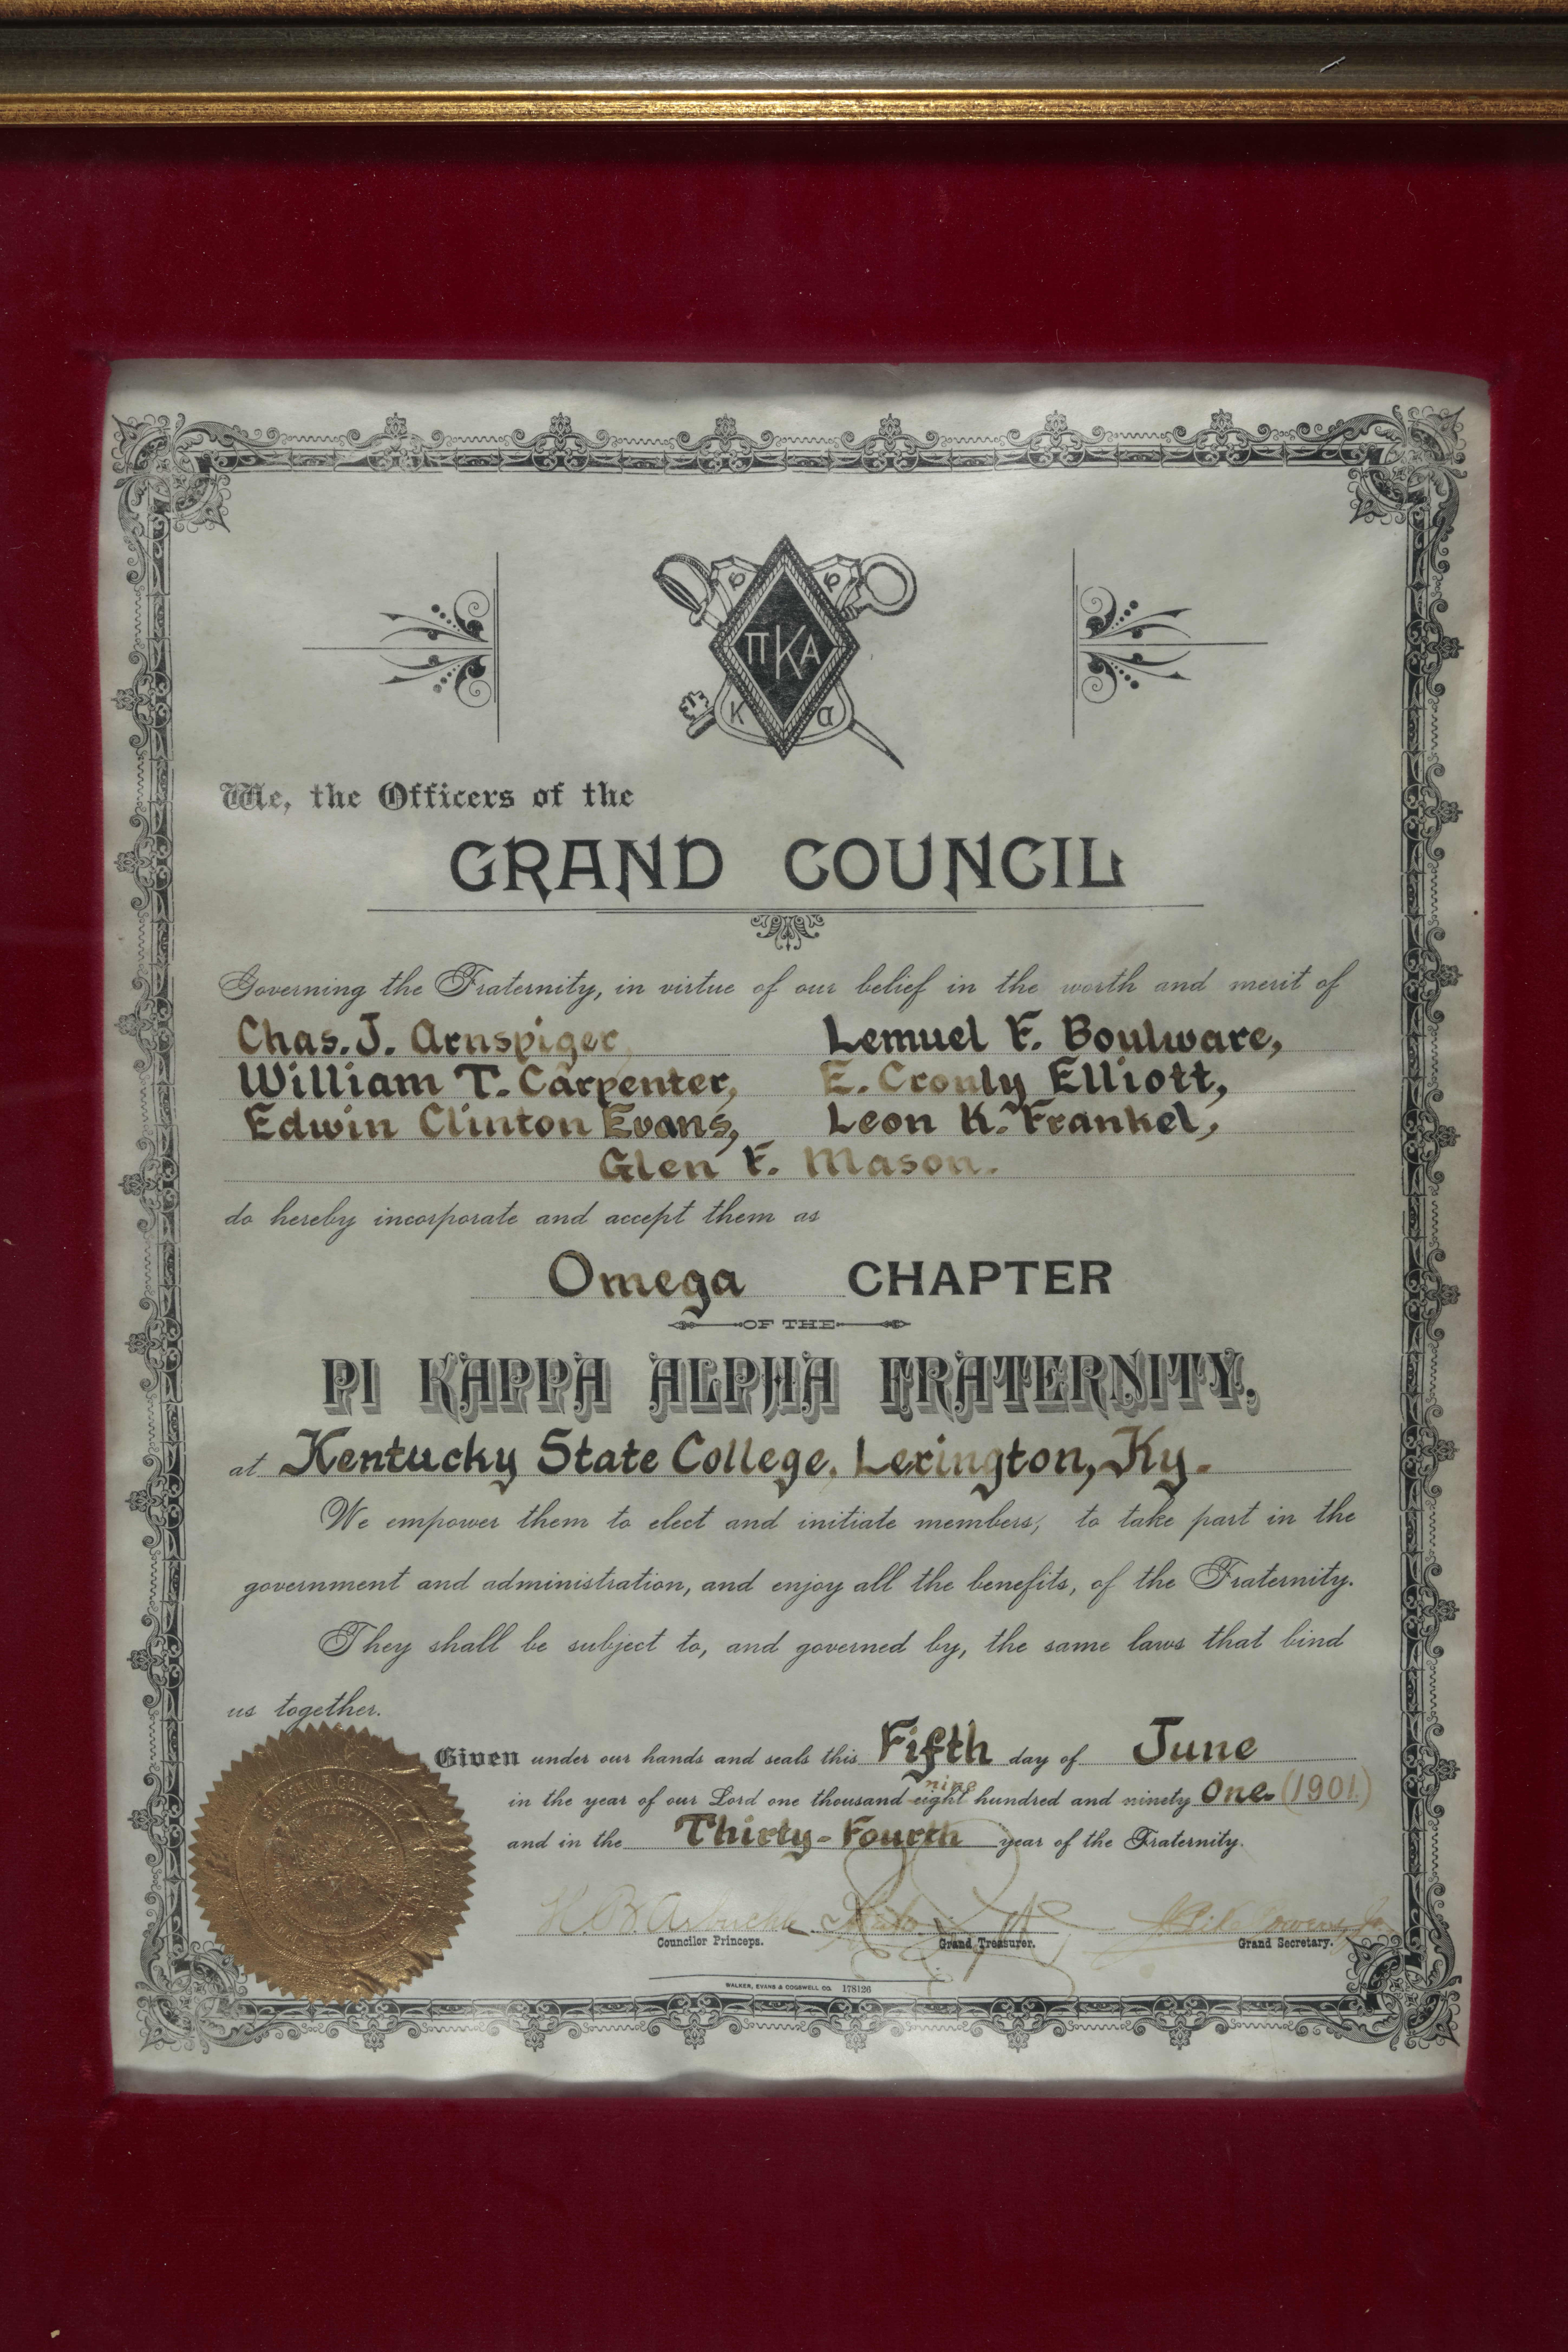 ΠΚΑ
Φ Φ
Κ α
We, the Officers of the
GRAND COUNCIL
Governing the Fraternity, in virtue of our belief in the worth and merit of
Chas. J. Arnspiger, Lemuel F. Boulware,
William T. Carpenter, E. Cronly Elliott,
Edwin Clinton Evans, Leon K. Frankel,
Glen F. Mason.
do hereby incorporate and accept them as
Omega CHAPTER
OF THE
PI KAPPA ALPHA FRATERNITY,
at Kentucky State College, Lexington, Ky.
We empower them to elect and initiate members, to take part in the
government and administration, and enjoy all the benefits, of the Fraternity.
They shall be subject to, and governed by, the same laws that bind
us together.
Given under our hands and seals this Fifth day of June
nine
in the year of our Lord one thousand eight hundred and ninety One. (1901.)
and in the Thirty-Fourth year of the Fraternity.
H. B. Arbuckle
Councilor Princeps. Grand Treasurer. Grand Secretary.
WALKER, EVANS & COGSWELL CO. 178126